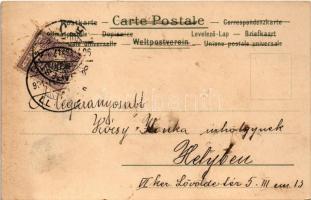 Postkarte - Carte Postale - Correspondenzkarte
Dopisnice Levelező-Lap - Briefkaart
universelle Weltpostverein Union postale universelle
A legaranyosabb
Ilonka urhölgynek
Helyben
VI ker. Lövölde tér 5. III em. 13